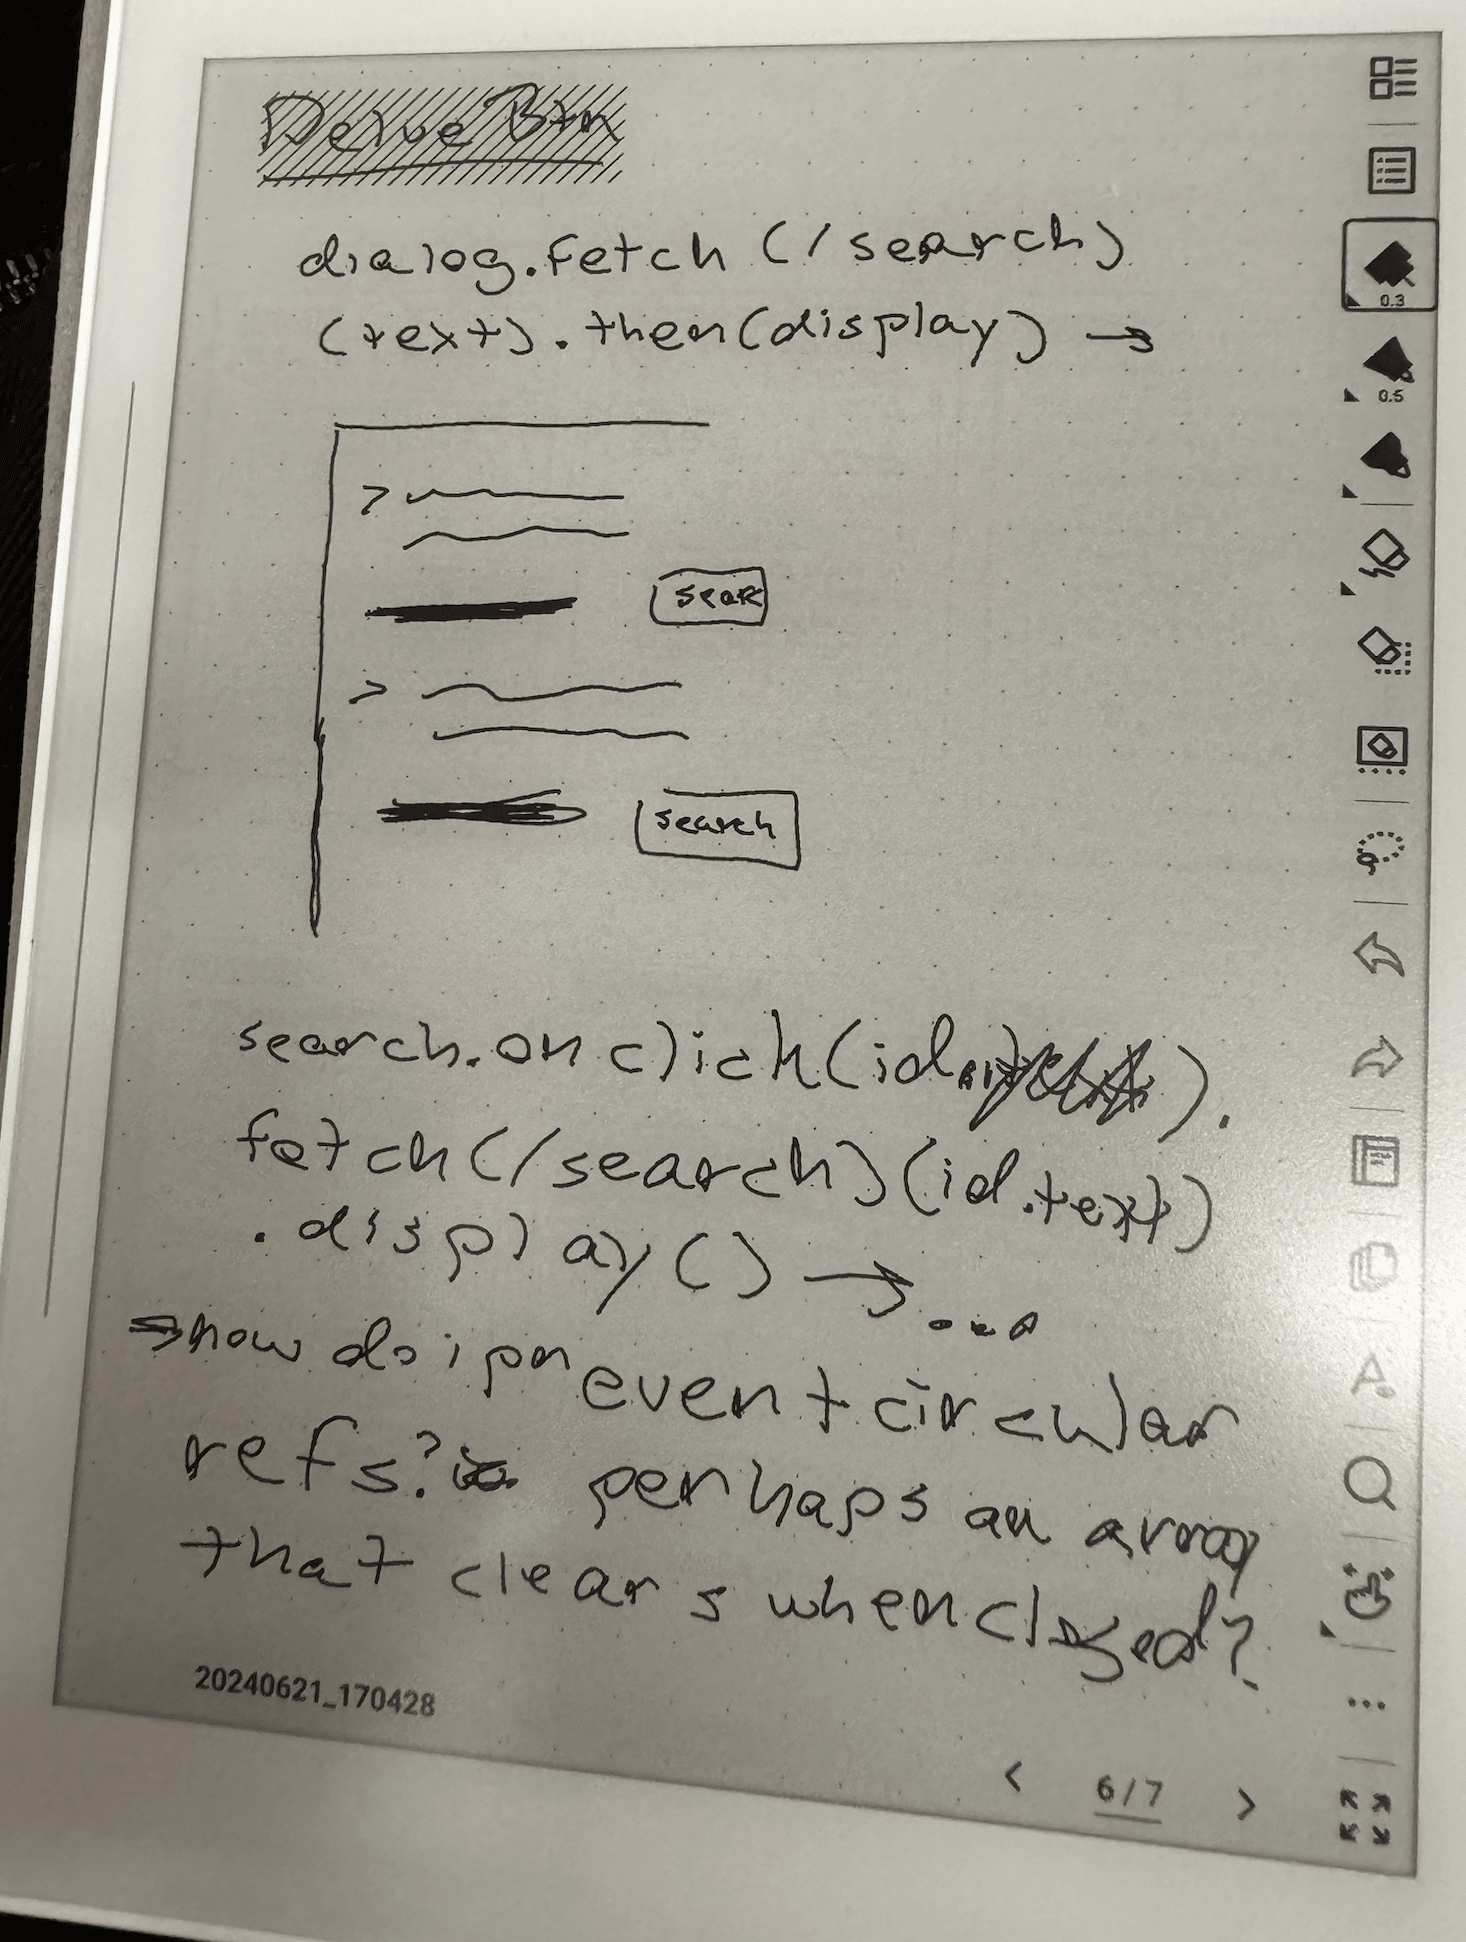 Delve Btn
dialog.fetch(/search)
(text).then(display) →
>
sear
>
search
search.onclick(id ).
fetch(/search)(id.text)
.display() → ...
→ how do i prevent circular
refs? perhaps an array
that clears when closed?
20240621_170428
< 6/7 >
0.3
0.5